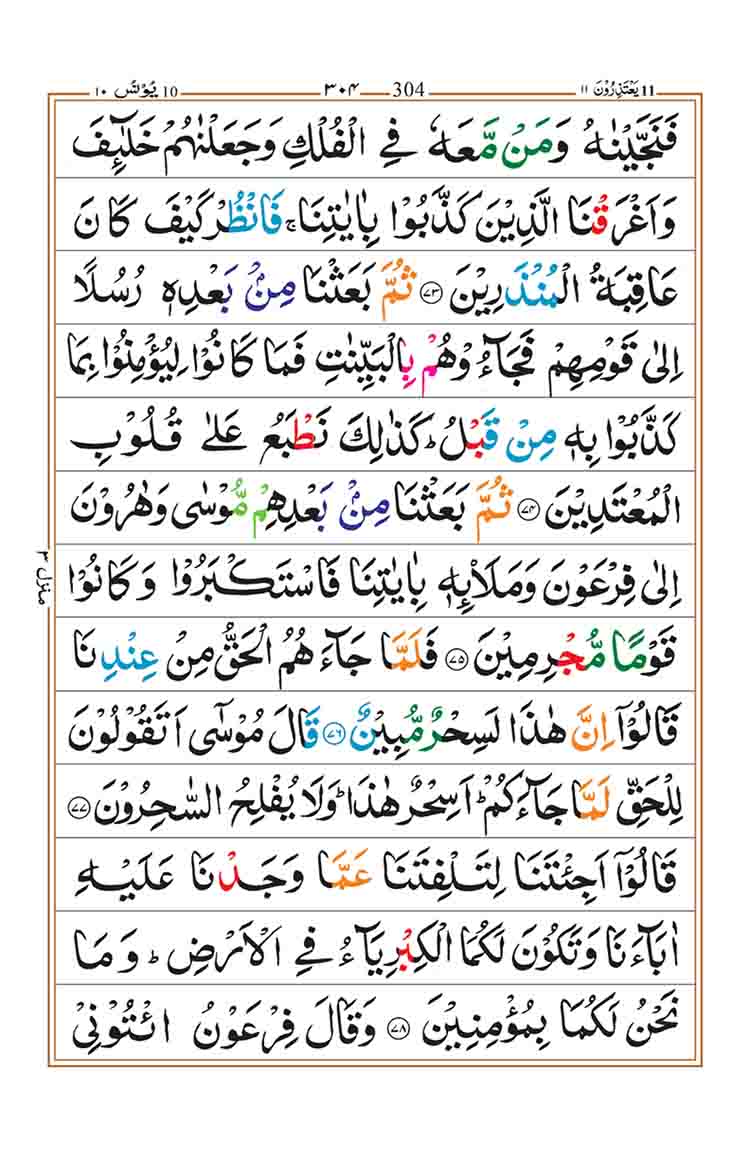 یَعْتَذِرُوْنَ ۱۱ 11 304 ۳۰۴ یُوْنُس ۱۰ 10
فَنَجَّیْنٰهُ وَمَنْ مَّعَهٗ فِی الْفُلْكِ وَجَعَلْنٰهُمْ خَلٰٓئِفَ
وَاَغْرَقْنَا الَّذِیْنَ كَذَّبُوْا بِاٰیٰتِنَا ۚ فَانْظُرْ كَیْفَ كَانَ
عَاقِبَةُ الْمُنْذَرِیْنَ ﴿۷۳﴾ ثُمَّ بَعَثْنَا مِنْۢ بَعْدِهٖ رُسُلًا
اِلٰی قَوْمِهِمْ فَجَآءُوْهُمْ بِالْبَیِّنٰتِ فَمَا كَانُوْا لِیُؤْمِنُوْا بِمَا
كَذَّبُوْا بِهٖ مِنْ قَبْلُ ؕ كَذٰلِكَ نَطْبَعُ عَلٰی قُلُوْبِ
الْمُعْتَدِیْنَ ﴿۷۴﴾ ثُمَّ بَعَثْنَا مِنْۢ بَعْدِهِمْ مُّوْسٰی وَهٰرُوْنَ
اِلٰی فِرْعَوْنَ وَمَلَا۟ئِهٖ بِاٰیٰتِنَا فَاسْتَكْبَرُوْا وَكَانُوْا
قَوْمًا مُّجْرِمِیْنَ ﴿۷۵﴾ فَلَمَّا جَآءَهُمُ الْحَقُّ مِنْ عِنْدِنَا
قَالُوْۤا اِنَّ هٰذَا لَسِحْرٌ مُّبِیْنٌ ﴿۷۶﴾ قَالَ مُوْسٰۤی اَتَقُوْلُوْنَ
لِلْحَقِّ لَمَّا جَآءَكُمْ ؕ اَسِحْرٌ هٰذَا ؕ وَلَا یُفْلِحُ السّٰحِرُوْنَ ﴿۷۷﴾
قَالُوْۤا اَجِئْتَنَا لِتَلْفِتَنَا عَمَّا وَجَدْنَا عَلَیْهِ
اٰبَآءَنَا وَتَكُوْنَ لَكُمَا الْكِبْرِیَآءُ فِی الْاَرْضِ ؕ وَمَا
نَحْنُ لَكُمَا بِمُؤْمِنِیْنَ ﴿۷۸﴾ وَقَالَ فِرْعَوْنُ ائْتُوْنِیْ
منزل ۳